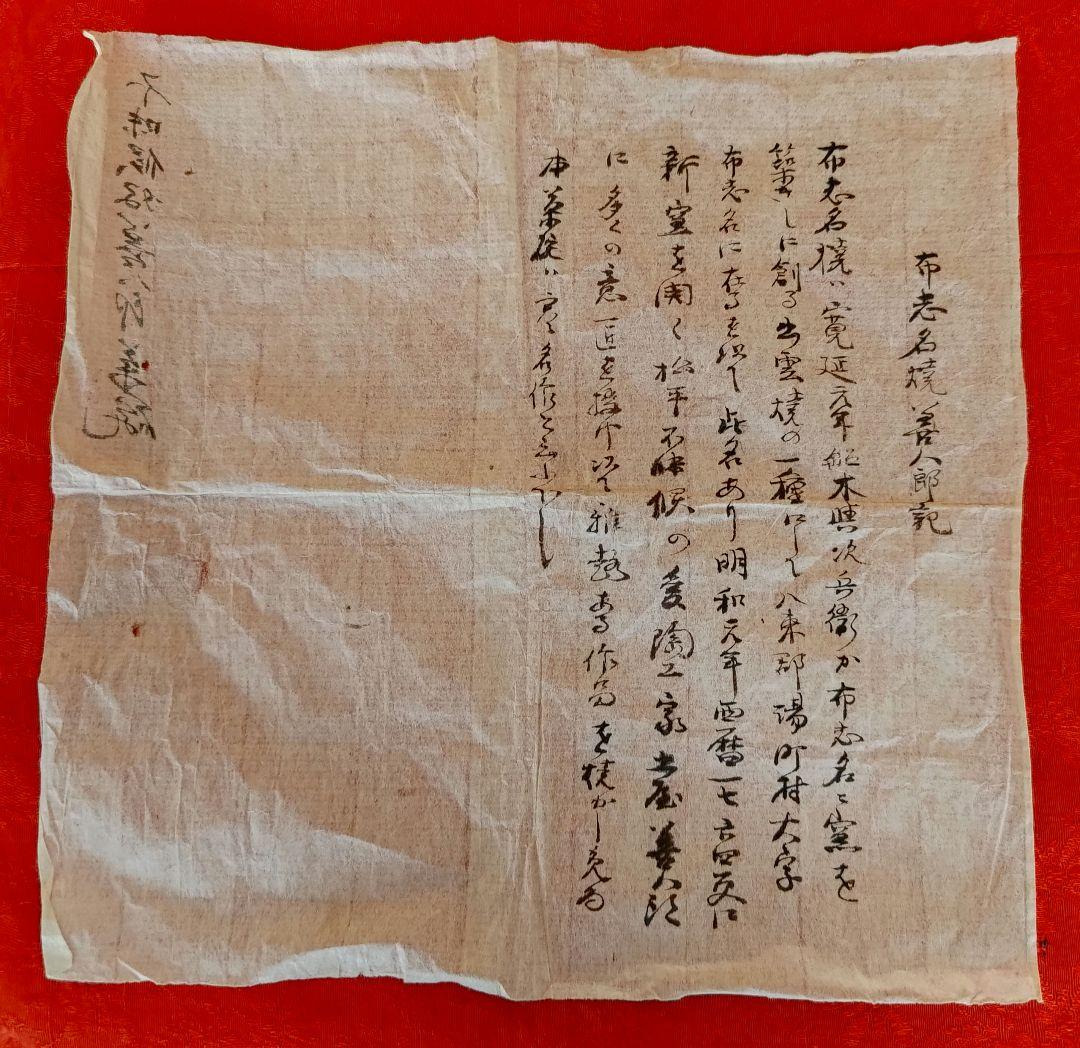 布志名焼善八郎記
布志名焼ハ寛延元年船木與次兵衛か布志名ニ窯を
築きしに創る出雲焼の一種にして八束郡湯町村大字
布志名に在るを以て此名あり明和元年西暦一七六四更に
新窯を開く松平不昧候の愛陶工家土屋善八郎
に多くの意匠を授け以て雅趣ある作品を焼かし免る
本茶碗ハ名作と云ふべし
不昧候 善八郎